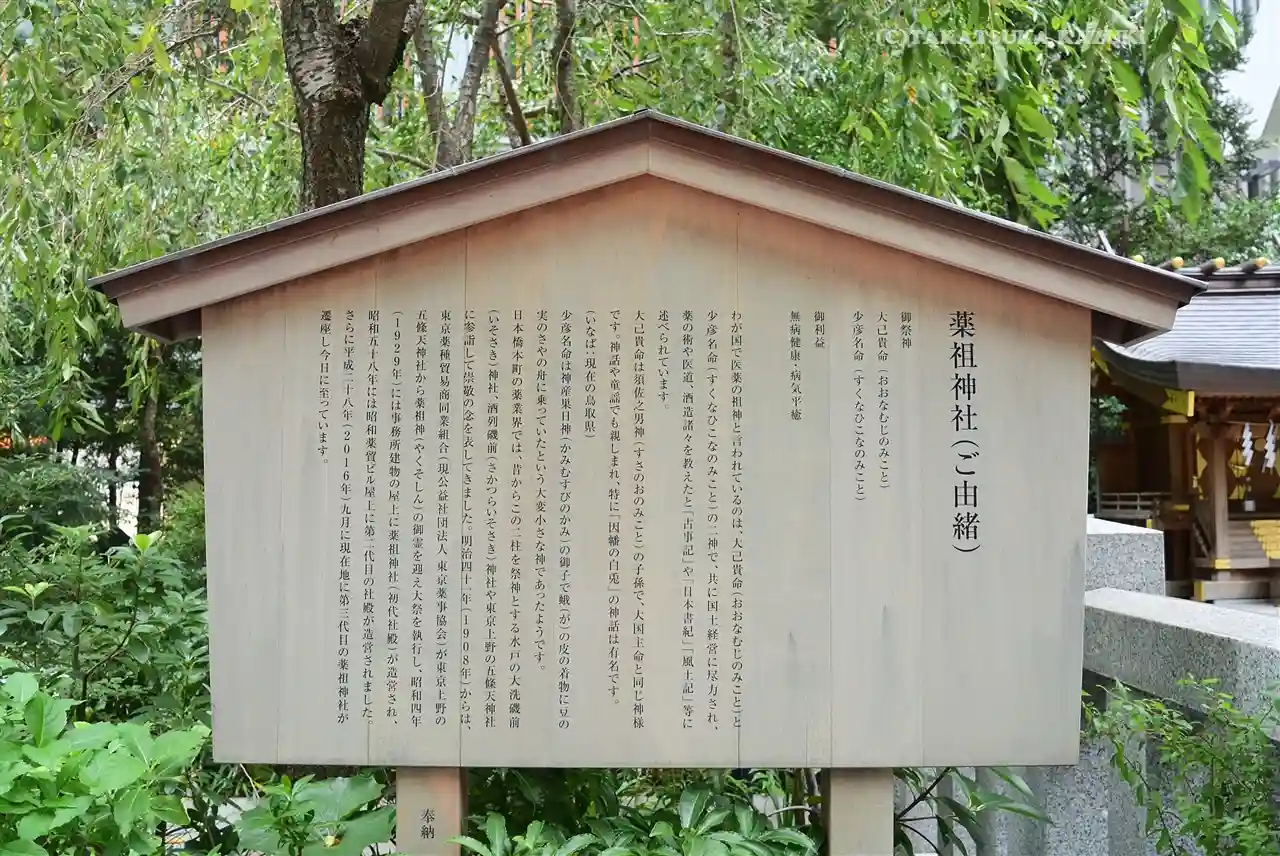 薬祖神社(ご由緒)
御祭神
大己貴命(おおなむじのみこと)
少彦名命(すくなひこなのみこと)
御利益
無病健康・病気平癒
わが国で医薬の祖神と言われているのは、大己貴命(おおなむじのみこと)と
少彦名命(すくなひこなのみこと)の二神で、共に国土経営に尽力され、
薬の術や医道、酒造諸々を教えたと「古事記」や「日本書紀」「風土記」等に
述べられています。
大己貴命は須佐之男神(すさのおのみこと)の子孫で、大国主命と同じ神様
です。神話や童謡でも親しまれ、特に「因幡の白兎」の神話は有名です。
(いなば:現在の鳥取県)
少彦名命は神産巣日神(かみむすびのかみ)の御子で蛾(が)の皮の着物に豆の
実のさやの舟に乗っていたという大変小さな神であったようです。
日本橋本町の薬業界では、昔からこの二柱を祭神とする水戸の大洗磯前
(いそさき)神社、酒列磯前(さかつらいそさき)神社や東京上野の五條天神社
に参詣して崇敬の念を表してきました。明治四十一年(1908年)からは、
東京薬種貿易商同業組合(現公益社団法人 東京薬事協会)が東京上野の
五條天神社から薬祖神(やくそしん)の御霊を迎え大祭を執行し、昭和四年
(1929年)には事務所建物の屋上に薬祖神社(初代社殿)が造営され、
昭和五十八年には昭和薬貿ビル屋上に第二代目の社殿が造営されました。
さらに平成二十八年(2016年)九月に現在地に第三代目の薬祖神社が
遷座し今日に至っています。
奉納
(C)TAKATSUKA KAZUKI